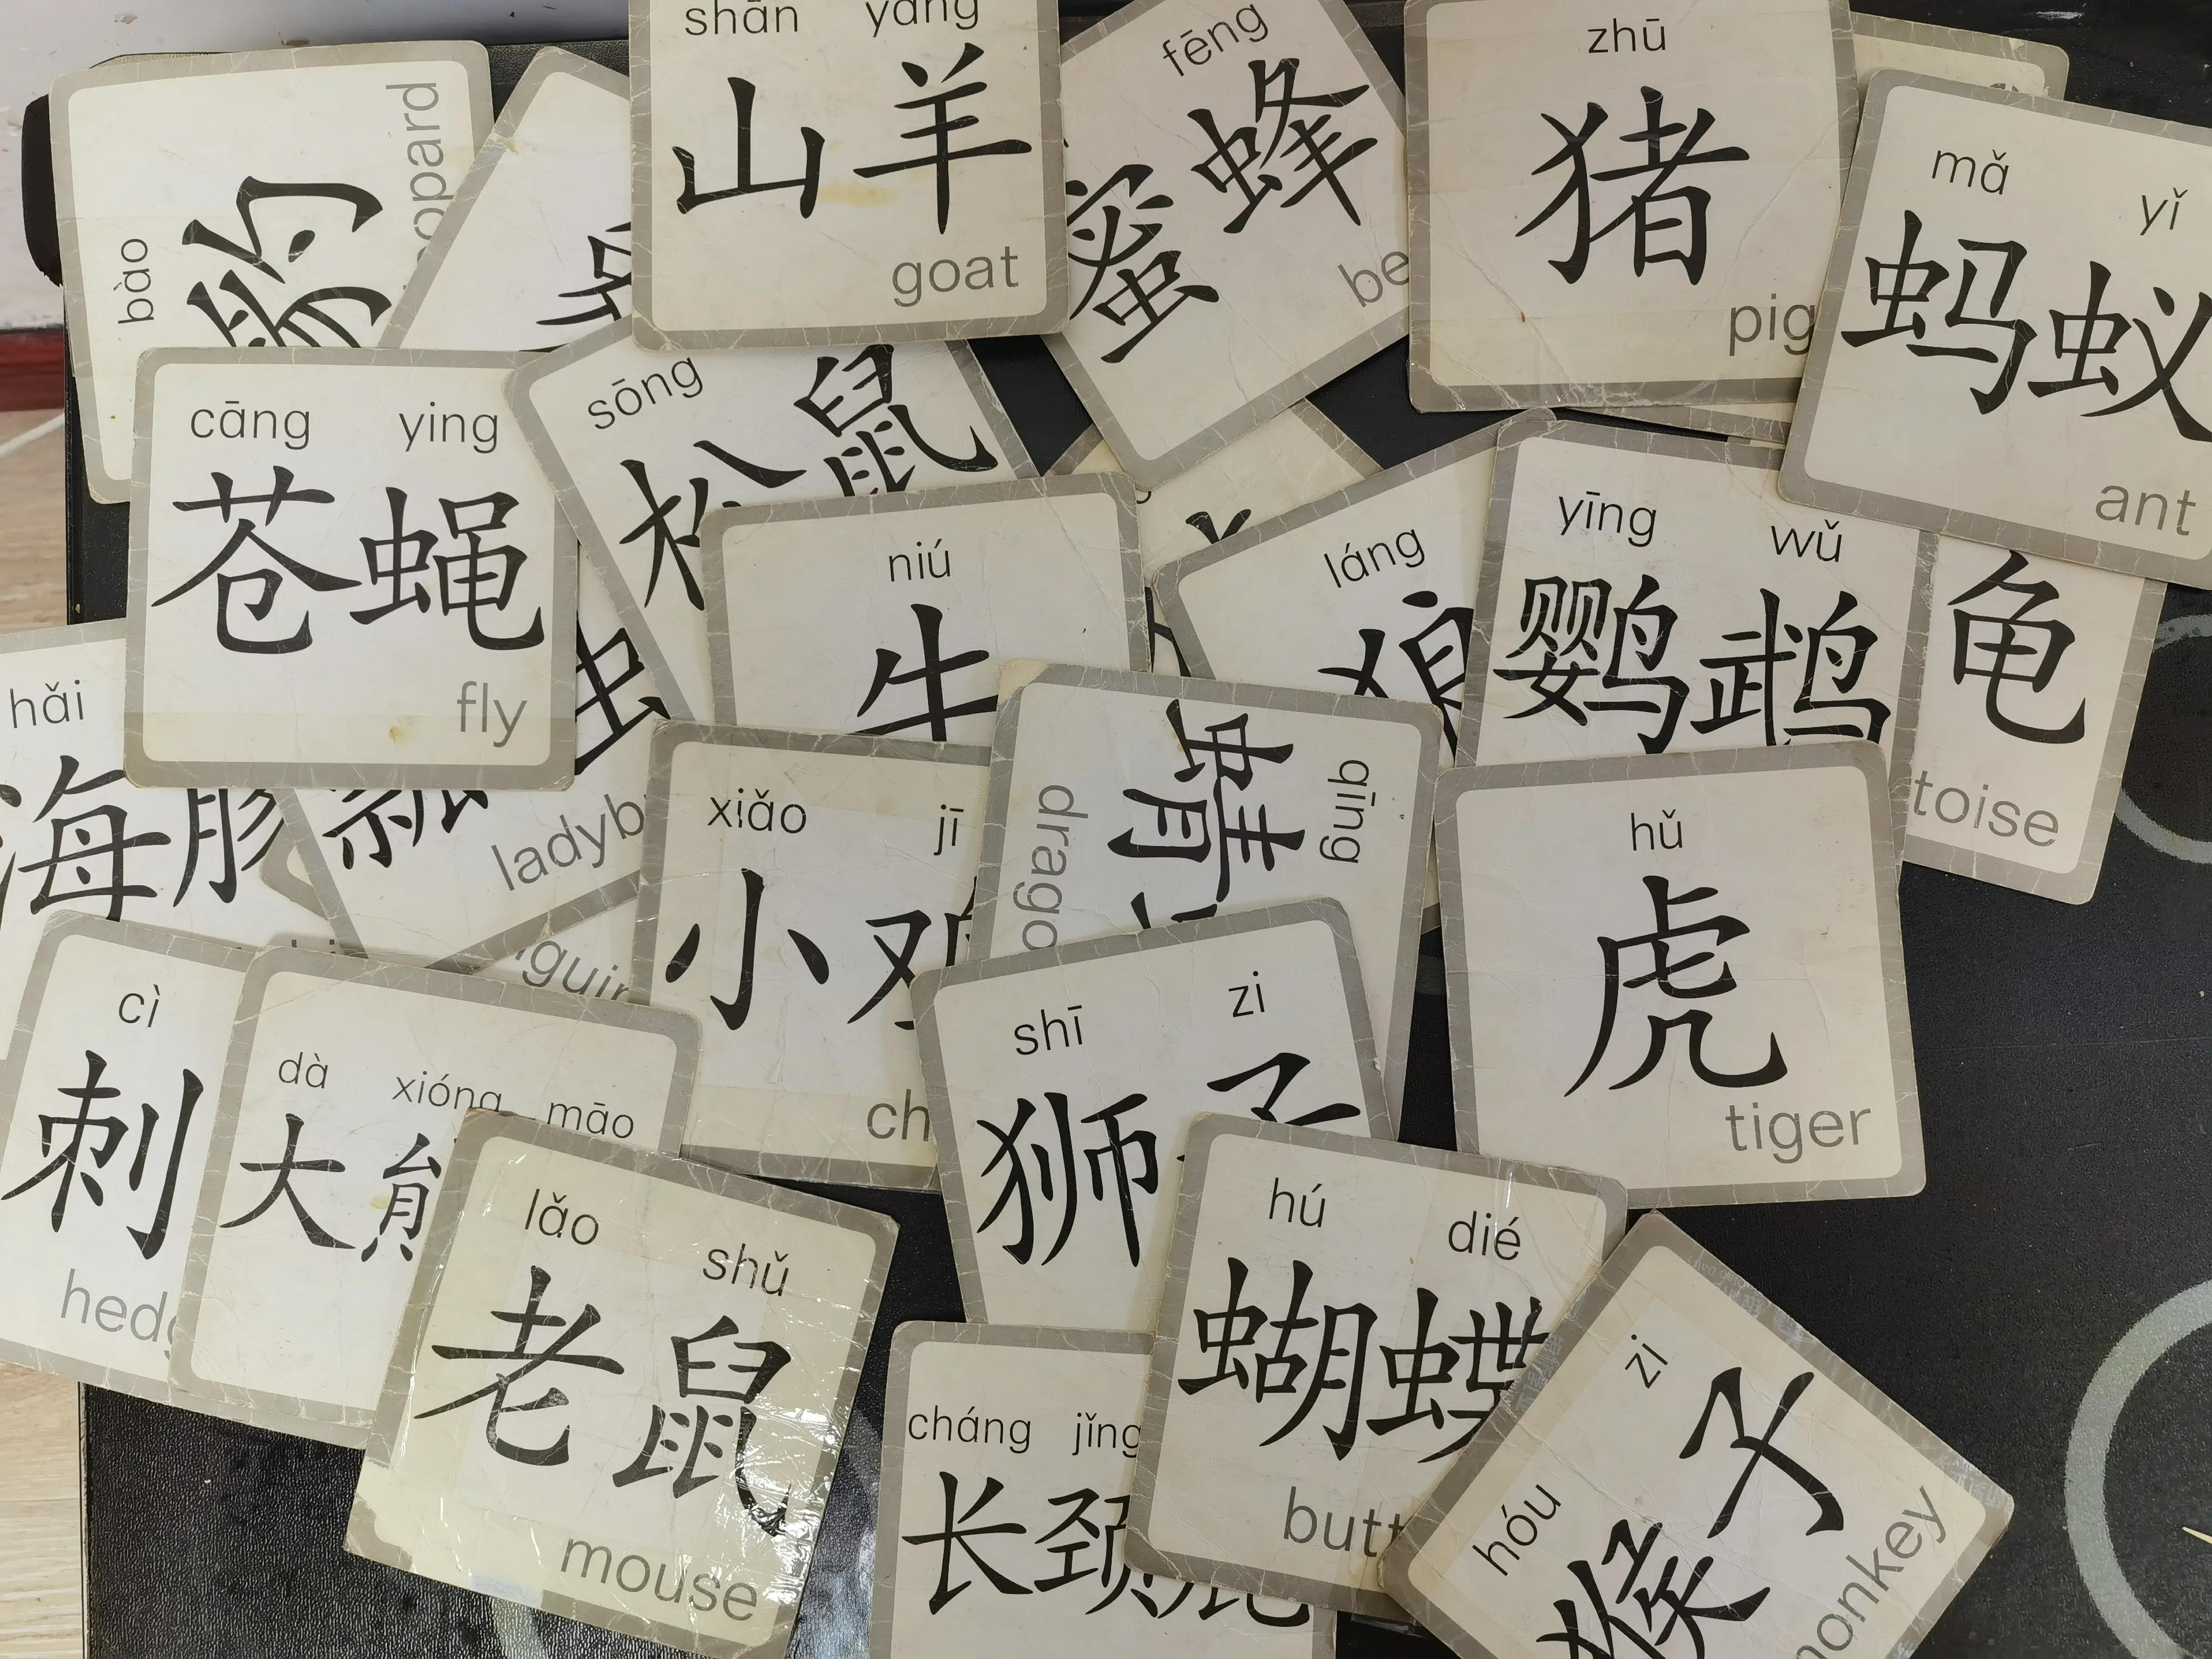 bào
豹
shān yáng
山羊
goat
fēng
蜜蜂
zhū
猪
pig
mǎ yǐ
蚂蚁
ant
cāng ying
苍蝇
fly
sōng
松鼠
niú
牛
láng
狼
yīng wǔ
鹦鹉
龟
toise
hǎi
海豚
瓢虫
ladyb
xiǎo jī
小鸡
ch
qīng
蜻
drago
hǔ
虎
tiger
cì
刺
hedg
dà xióng māo
大熊
lǎo shǔ
老鼠
mouse
shī zi
狮子
hú dié
蝴蝶
butt
cháng jǐng
长颈鹿
hóu zi
猴子
monkey